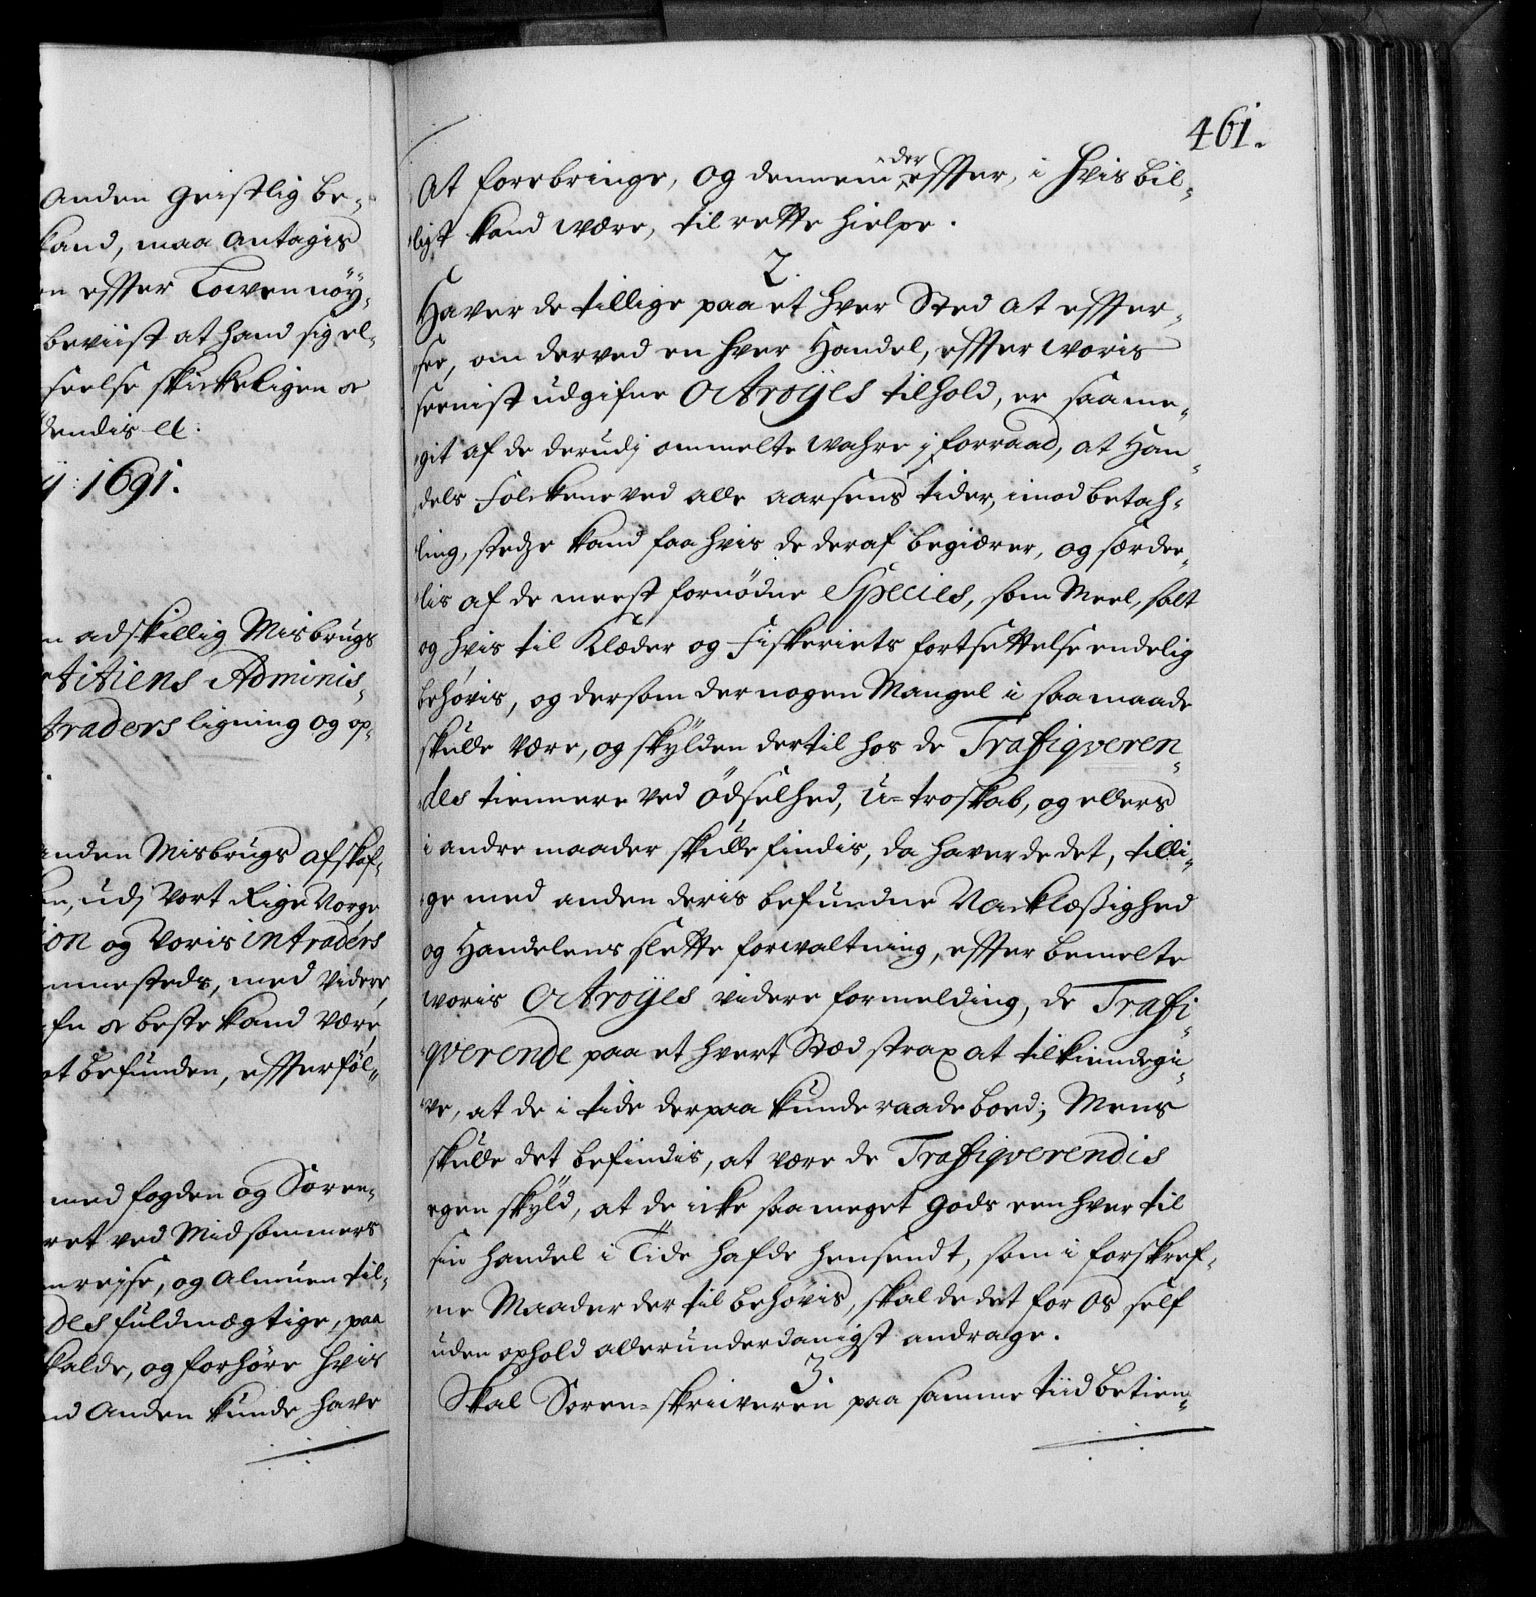 Anden Geistlig be-
kand, maa Antagis
effter Lowen nöy-
beviist at hand sig el-
seelse skickeligen &
dendis &c:
1691.
adskillig Misbrugs
titiens Adminis-
traders ligning og op-
anden Misbrugs afskaf-
udj Vort Rige Norge
ion og Voris intraders
med videre
beste kand være,
befunden, effterföl-
med fogden og Soren-
ved Midsommers
reyse, og Almuen til-
des fuldmægtige, paa
kalde, og forhöre hvis
Anden kunde have
461.
At forebringe, og dennem der effter, i hvis bil-
ligt kand være, til rette hielpe.
2.
Haver de tillige paa et hver Sted at effter-
see, om derved en hver Handel, effter woris
seenist udgifne Octroijes tilhold, er saa me-
git af de derudj ommelte wahre j forraad, at Han-
dels Folckene ved alle aarsens tider, imod betah-
ling, stedze kand faa hvis de deraf begiærer, og særdee-
lis af de meest fornödne Species, som Meel, salt
og hvis til Klæder og Fiskeriets fortsettelse endelig
behövis, og dersom der nogen Mangel i saa maade
skulle være, og skylden dertil hos de Trafiqveren-
des tiennere ved ödselhed, U-troskab, og ellers
i andre maader skulle findis, da haver de det, tilli-
ge med anden deris befundne Nachlæßighed
og Handelens slette forwaltning, effter bemelte
woris Octroijes videre formelding, de Trafi-
qverende paa et hvert Stæd strax at tilkiendegi-
ve, at de i tide derpaa kunde raade boed; Mens
skulle det befindis, at være de Trafiqverendis
egen skyld, at de icke saa meget Gods een hver til
sin handel i Tide hafde hensendt, som i forskref-
ne Maader der til behövis, skal de det for Os self
uden ophold allerunderdanigst andrage.
3.
Skal Soren-skriveren paa samme tiid betien-